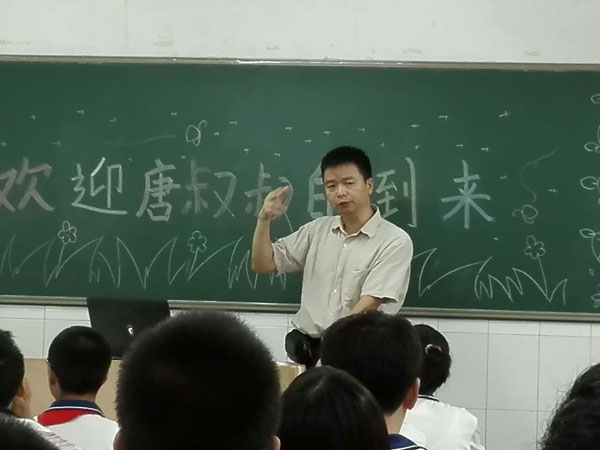 欢迎唐叔叔的到来